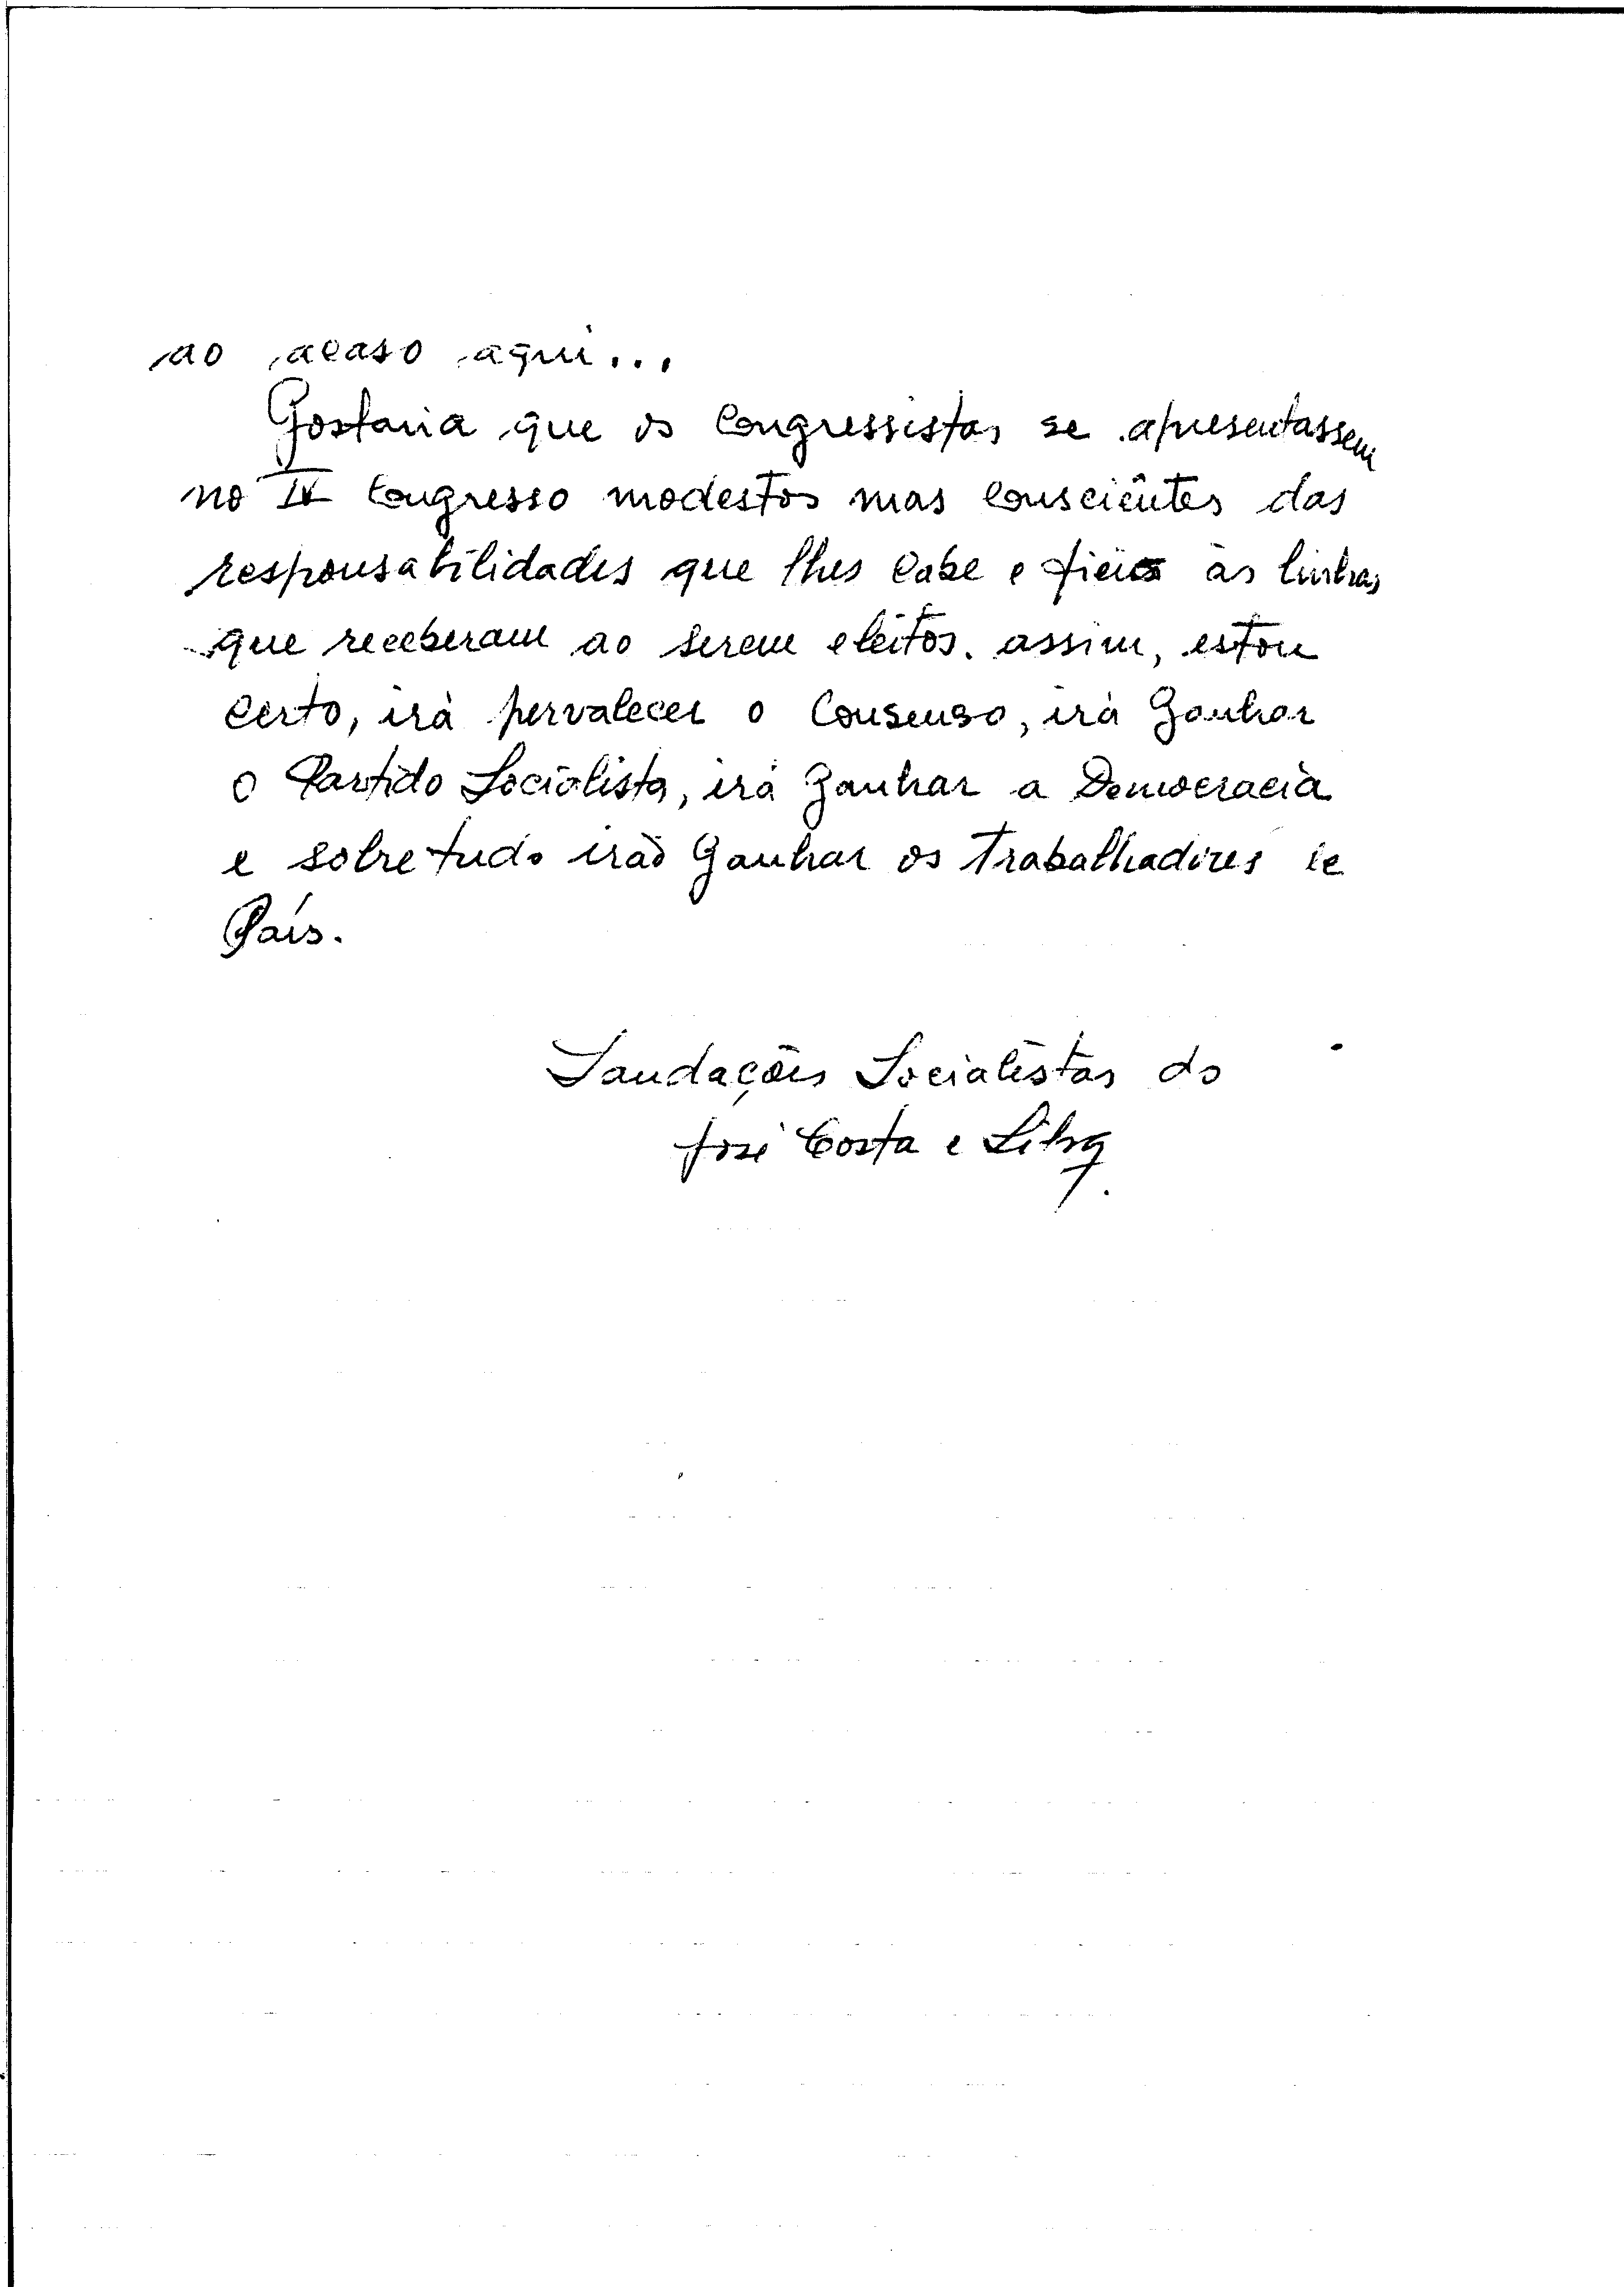 ao acaso aqui...
Gostaria que os Congressistas se apresentassem
no IV Congresso modestos mas conscientes das
responsabilidades que lhes cabe e fieis às linhas
que receberam ao serem eleitos. assim, estou
certo, irà pervalecer o Consenso, irà Ganhar
o Partido Socialista, irà ganhar a Democracia
e sobretudo irão Ganhar os Trabalhadores
País.
Saudações Socialistas do
José Costa e Silva